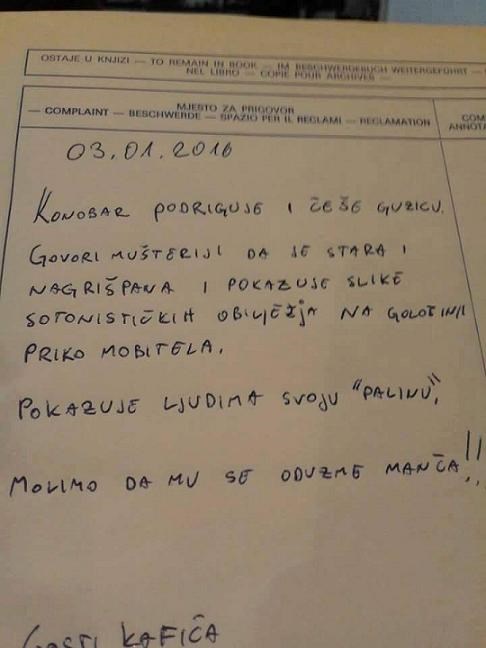 OSTAJE U KNJIZI — TO REMAIN IN BOOK — IM BESCHWERDEBUCH WEITERGEFÜHRT —
NEL LIBRO — COPIE POUR ARCHIVES —
MJESTO ZA PRIGOVOR
— COMPLAINT — BESCHWERDE — SPAZIO PER IL RECLAMI — RECLAMATION
COM
ANNOTA
03.01.2016
KONOBAR PODRIGUJE I ČEŠE GUZICU.
GOVORI MUŠTERIJI DA JE STARA I
NAGRIŠPANA I POKAZUJE SLIKE
SOTONISTIČKIH OBILJEŽJA NA GOLOTINJI
PRIKO MOBITELA.
POKAZUJE LJUDIMA SVOJU "PALINU".
MOLIMO DA MU SE ODUZME MANČA!!
GOSTI KAFIČA